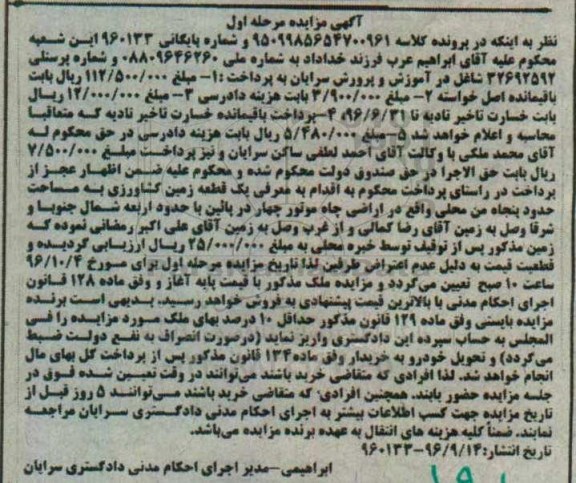 آگهی مزایده مرحله اول
نظر به اینکه در پرونده کلاسه ۹۵۰۹۹۸۵۶۵۴۷۰۰۹۶۱ و شماره بایگانی ۹۶۰۱۳۳ این شعبه
محکوم علیه آقای ابراهیم عرب فرزند خداداد به شماره ملی ۰۸۸۰۹۶۴۶۲۶۰ و شماره پرسنلی
۳۲۶۹۲۵۹۲ شاغل در آموزش و پرورش سرایان به پرداخت :۱- مبلغ ۱۱۲/۵۰۰/۰۰۰ ریال بابت
باقیمانده اصل خواسته ۲- مبلغ ۳/۹۰۰/۰۰۰ بابت هزینه دادرسی ۳- مبلغ ۱۲/۰۰۰/۰۰۰ ریال
بابت خسارت تاخیر تادیه تا ۹۶/۶/۳۱، ۴-پرداخت باقیمانده خسارت تاخیر تادیه که متعاقبا
محاسبه و اعلام خواهد شد ۵-مبلغ ۵/۴۸۰/۰۰۰ ریال بابت هزینه دادرسی در حق محکوم له
آقای محمد ملکی با وکالت آقای احمد لطفی ساکن سرایان و نیز پرداخت مبلغ ۷/۵۰۰/۰۰۰
ریال بابت حق الاجرا در حق صندوق دولت محکوم شده و محکوم علیه ضمن اظهار عجز از
پرداخت در راستای پرداخت محکوم به اقدام به معرفی یک قطعه زمین کشاورزی به مساحت
حدود پنجاه من محلی واقع در اراضی چاه موتور چهار در پائین با حدود اربعه شمال جنوبا و
شرقا وصل به زمین آقای رضا کمالی و از غرب وصل به زمین آقای علی اکبر رمضانی نموده که
زمین مذکور پس از توقیف توسط خبره محلی به مبلغ ۲۵/۰۰۰/۰۰۰ ریال ارزیابی گردیده و
قطعیت قیمت به دلیل عدم اعتراض طرفین لذا تاریخ مزایده مرحله اول برای مورخ ۹۶/۱۰/۴
ساعت ۱۰ صبح تعیین می‌گردد و مزایده ملک مذکور با قیمت پایه آغاز و وفق ماده ۱۲۸ قانون
اجرای احکام مدنی با بالاترین قیمت پیشنهادی به فروش خواهد رسید. بدیهی است برنده
مزایده بایستی وفق ماده ۱۲۹ قانون مذکور حداقل ۱۰ درصد بهای ملک مورد مزایده را فی
المجلس به حساب سپرده این دادگستری واریز نماید (درصورت انصراف به نفع دولت ضبط
می‌گردد) و تحویل خودرو به خریدار وفق ماده۱۳۴ قانون مذکور پس از پرداخت کل بهای مال
انجام خواهد شد. لذا افرادی که متقاضی خرید باشند می‌توانند در وقت تعیین شده فوق در
جلسه مزایده حضور یابند. همچنین افرادی که متقاضی خرید باشند می‌توانند ۵ روز قبل از
تاریخ مزایده جهت کسب اطلاعات بیشتر به اجرای احکام مدنی دادگستری سرایان مراجعه
نمایند. ضمناً کلیه هزینه های انتقال به عهده برنده مزایده می‌باشد.
تاریخ انتشار:۹۶/۹/۱۴-۹۶۰۱۳۳
ابراهیمی-مدیر اجرای احکام مدنی دادگستری سرایان